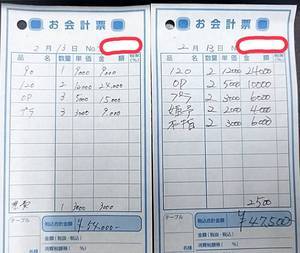 お会計票
2月13日 No.
品名 数量 単価 金額
90 1 9000 9,000
120 2 12000 24,000
OP 3 5000 15,000
プラ 3 3000 9,000
テーブル
税込合計金額
金額(税抜・税込)
消費税額等(%)
お会計票
2月13日 No.
品名 数量 単価 金額
120 2 12000 24000
OP 2 5000 10000
プラ 2 3000 6000
2 2000 4000
本指 2 3000 6000
2500
テーブル
税込合計金額 ¥47500
金額(税抜・税込)
消費税額等(%)